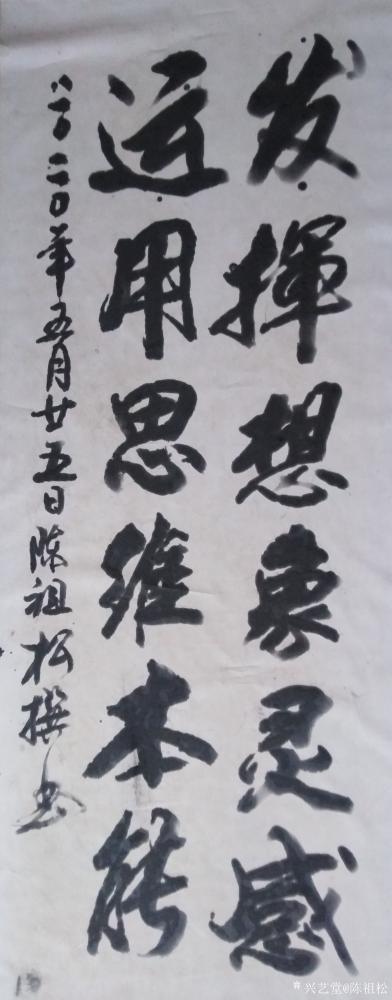 发揮想象灵感
运用思维本能
二0二0年五月廿五日陈祖松撰书
兴艺堂@陈祖松